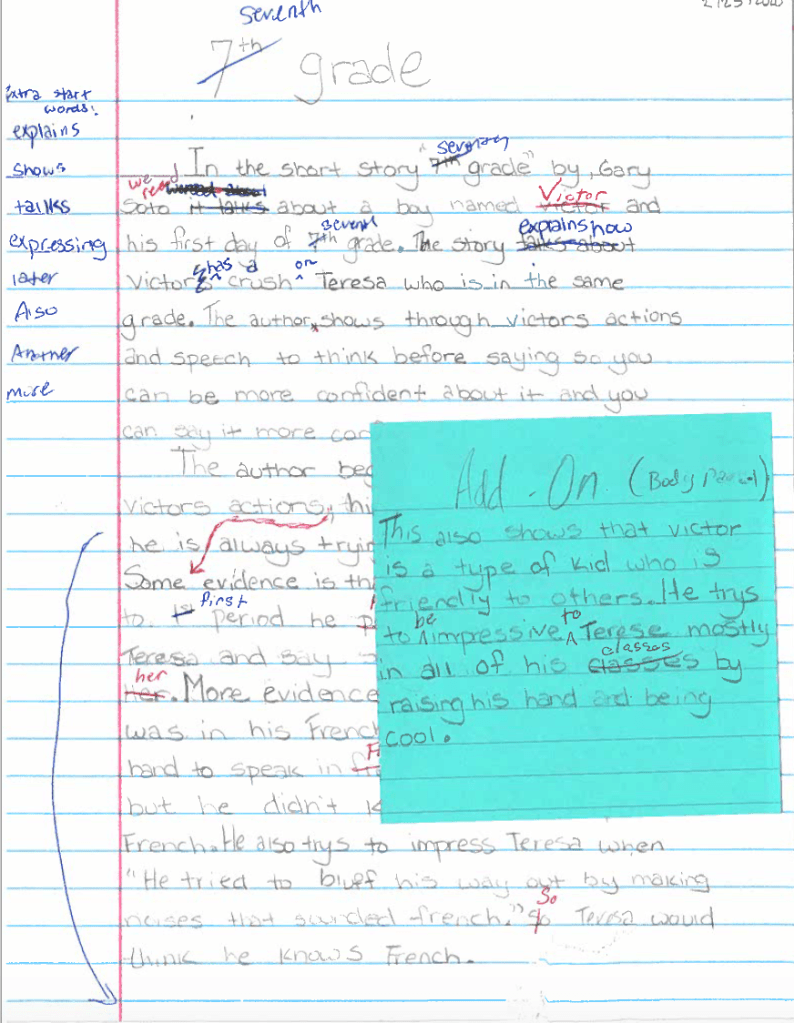 seventh
7th grade
Extra start
words:
explains
shows
talkss
expressing
later
Also
Another
more
In the short story "7th seventh grade" by, Gary
Soto we read it talks about a boy named victor Victor and
his first day of 7th seventh grade. The story talks about explains how
Victor has a crush on Teresa who is in the same
grade. The author shows through victors actions
and speech to think before saying so you
can be more confident about it and you
can say it more
The author
victors actions,
he is always
Some evidence is
to 1st first period he
Teresa and say
her her. More evidence
was in his French
hand to speak in
but he didn't
French. He also trys to impress Teresa when
"He tried to bluff his way out by making
noises that sounded french." So Teresa would
think he knows French.
Add-On (Body Par
This also shows that victor
is a type of kid who is
friendly to others. He trys
to be impressive to Terese mostly
in all of his classes classes by
raising his hand and being
cool.